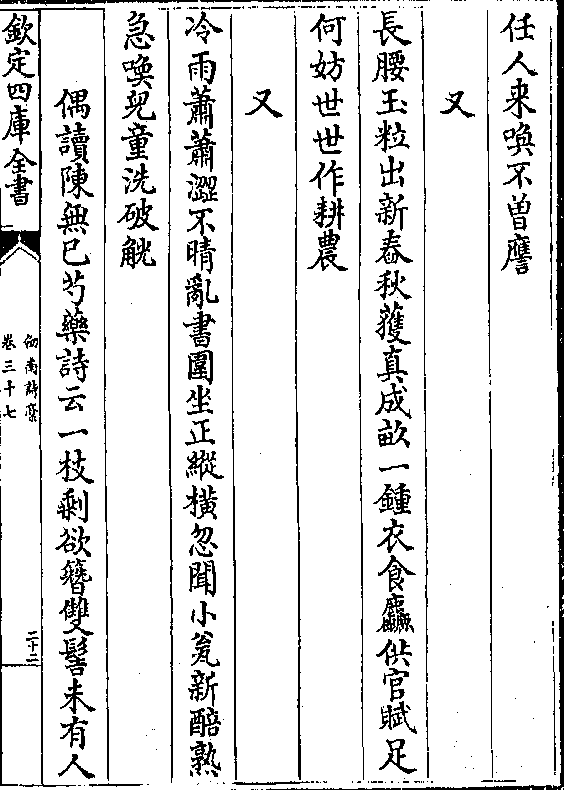 任人来喚不曽譍
又
長腰玉粒出新舂秋穫真成畝一鍾衣食麤供官賦足
何妨世世作耕農
又
冷雨蕭蕭澀不晴亂書圍坐正縱橫忽聞小瓮新醅熟
急喚兒童洗破觥
偶讀陳無已芍藥詩云一枝剩欲簪雙髻未有人
欽定四庫全書
劒南詩稾
卷三十七
二十二